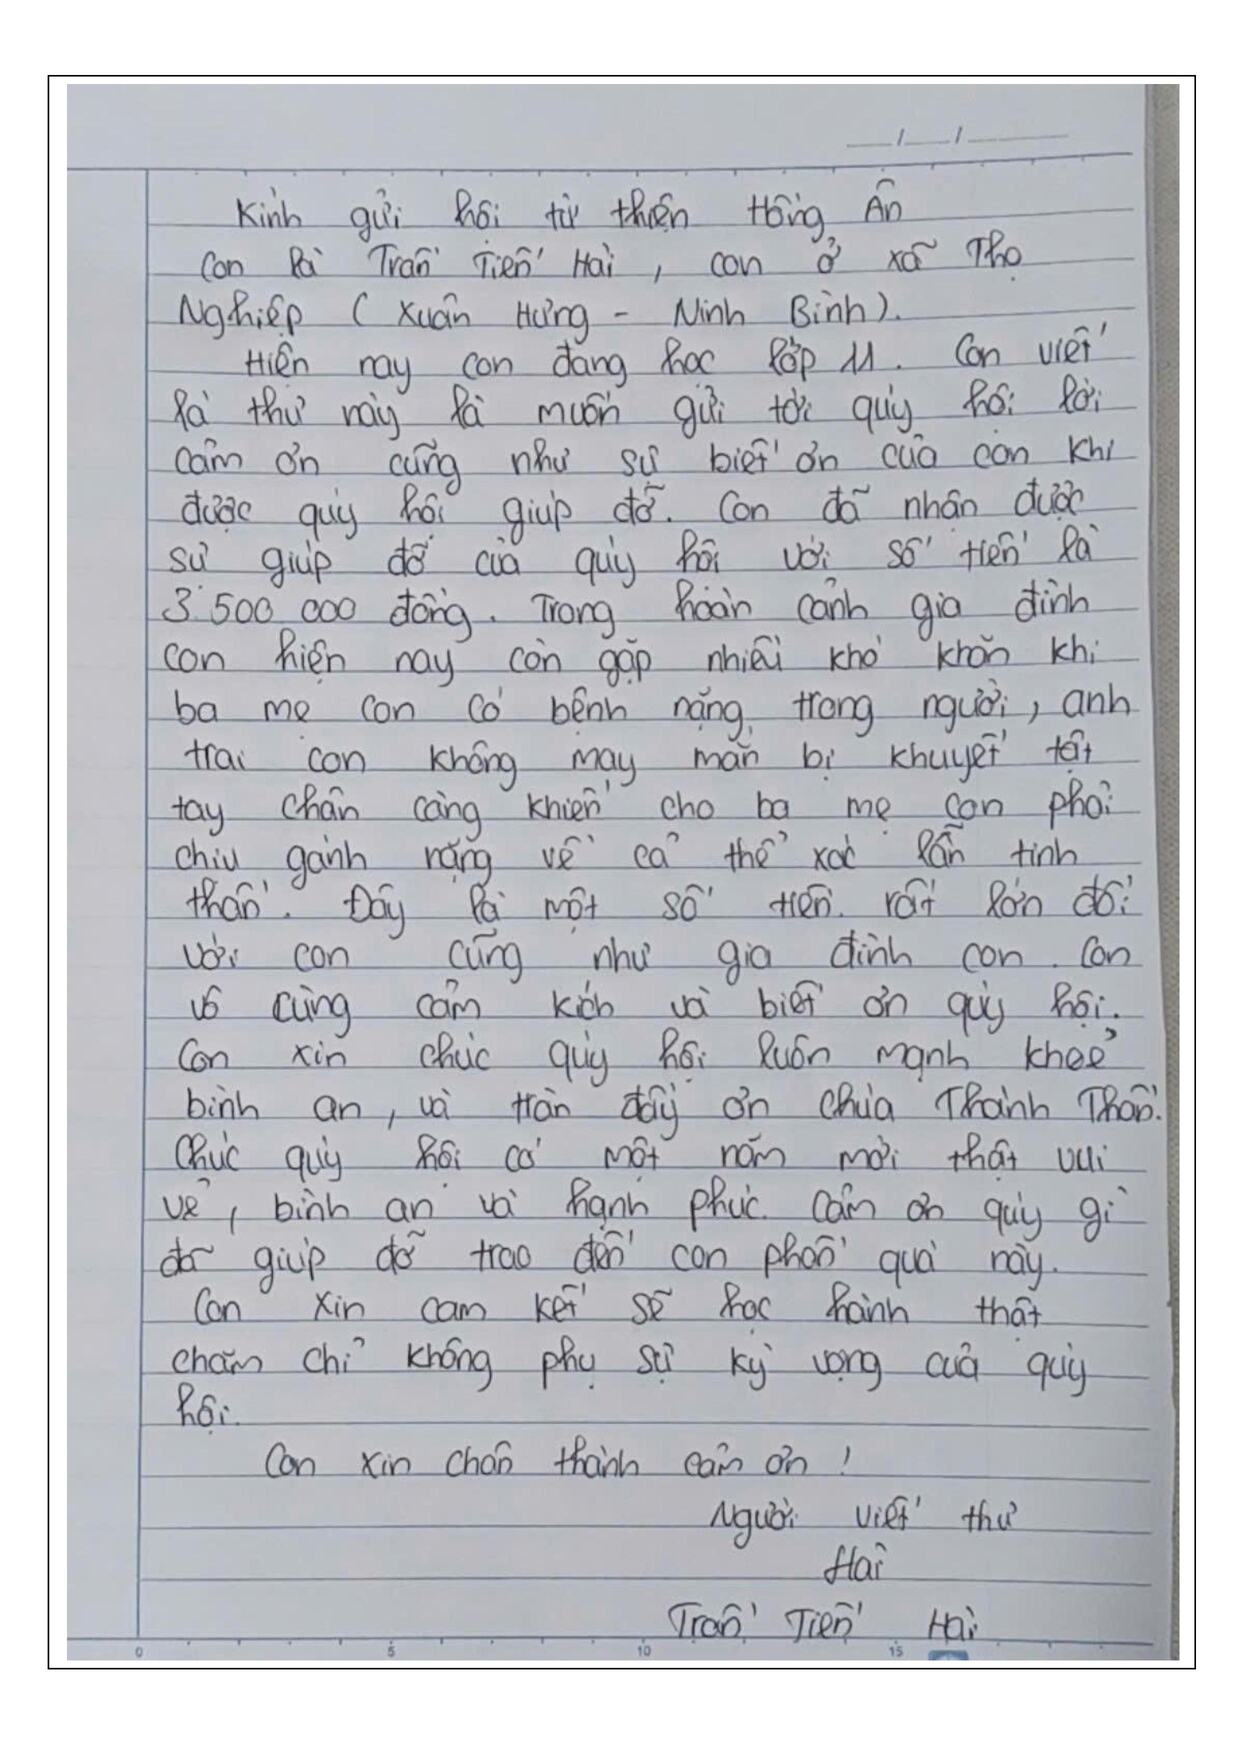 Kính gửi hội từ thiện Hồng Ân
Con là Trần Tiến Hải, con ở xã Thọ
Nghiệp ( Xuân Hưng - Ninh Bình).
Hiện nay con đang học lớp 11. Con viết
lá thư này là muốn gửi tới quý hội lời
cảm ơn cũng như sự biết ơn của con khi
được quý hội giúp đỡ. Con đã nhận được
sự giúp đỡ của quý hội với số tiền là
3.500 000 đồng. Trong hoàn cảnh gia đình
con hiện nay còn gặp nhiều khó khăn khi
ba mẹ con có bệnh nặng trong người, anh
trai con không may mắn bị khuyết tật
tay chân càng khiến cho ba mẹ con phải
chịu gánh nặng về cả thể xác lẫn tinh
thần. Đây là một số tiền rất lớn đối
với con cũng như gia đình con. Con
vô cùng cảm kích và biết ơn quý hội.
Con xin chúc quý hội luôn mạnh khoẻ
bình an, và tràn đầy ơn chúa Thánh Thần.
Chúc quý hội có một năm mới thật vui
vẻ, bình an và hạnh phúc. Cảm ơn quý gì
đã giúp đỡ trao đến con phần quà này.
Con xin cam kết sẽ học hành thật
chăm chỉ không phụ sự kỳ vọng của quý
hội.
Con xin chân thành cảm ơn !
Người viết thư
Hải
Trần Tiến Hải
0 5 10 15